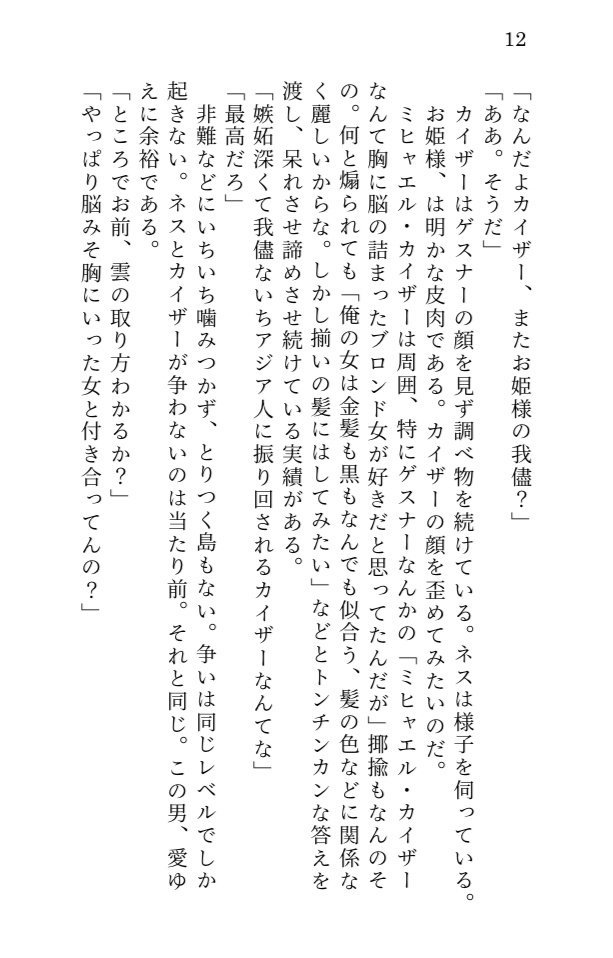 12
「なんだよカイザー、またお姫様の我儘？」
「ああ。そうだ」
　カイザーはゲスナーの顔を見ず調べ物を続けている。ネスは様子を伺っている。
　お姫様、は明かな皮肉である。カイザーの顔を歪めてみたいのだ。
　ミヒャエル・カイザーは周囲、特にゲスナーなんかの「ミヒャエル・カイザー
なんて胸に脳の詰まったブロンド女が好きだと思ってたんだが」揶揄もなんのそ
の。何と煽られても「俺の女は金髪も黒もなんでも似合う、髪の色などに関係な
く麗しいからな。しかし揃いの髪にはしてみたい」などとトンチンカンな答えを
渡し、呆れさせ諦めさせ続けている実績がある。
「嫉妬深くて我儘ないちアジア人に振り回されるカイザーなんてな」
「最高だろ」
　非難などにいちいち噛みつかず、とりつく島もない。争いは同じレベルでしか
起きない。ネスとカイザーが争わないのは当たり前。それと同じ。この男、愛ゆ
えに余裕である。
「ところでお前、雲の取り方わかるか？」
「やっぱり脳みそ胸にいった女と付き合ってんの？」